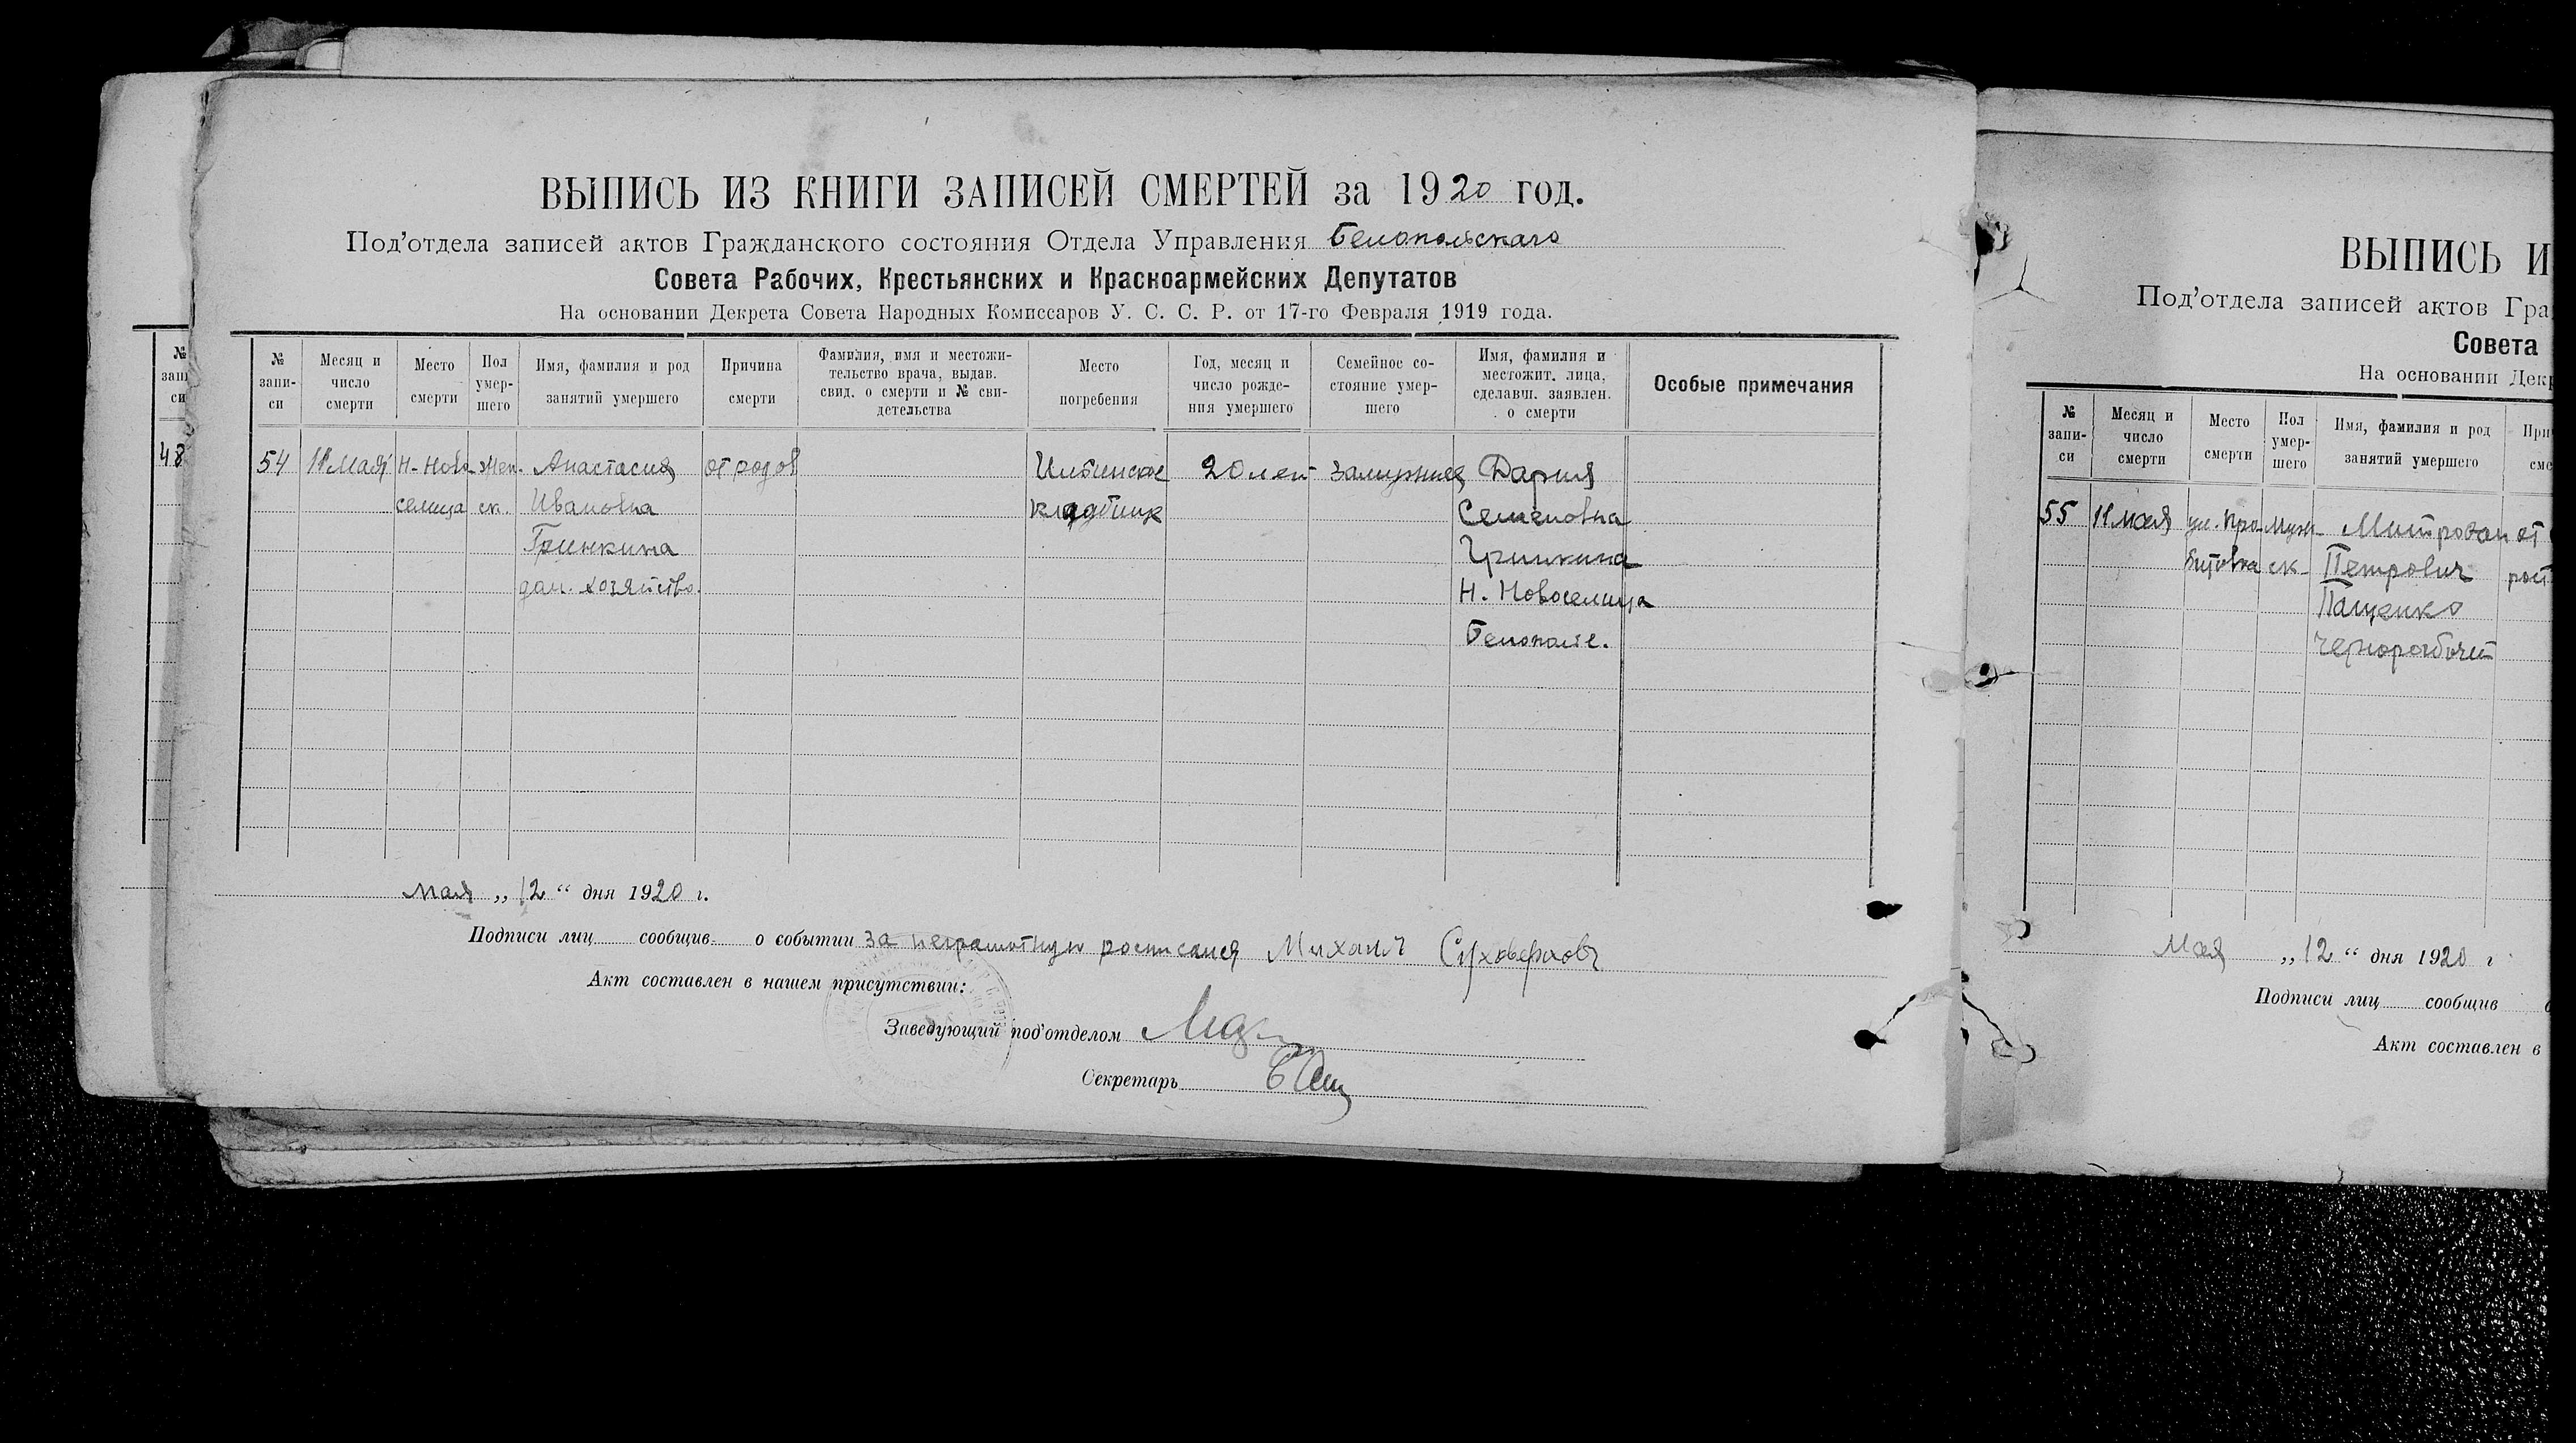 ВЫПИСЬ ИЗ КНИГИ ЗАПИСЕЙ СМЕРТЕЙ за 1920 год.
Под'отдела записей актов Гражданского состояния Отдела Управления Белопольскаго
Совета Рабочих, Крестьянских и Красноармейских Депутатов
На основании Декрета Совета Народных Комиссаров У. С. С. Р. от 17-го Февраля 1919 года.
№ запи- си
Месяц и число смерти
Место смерти
Пол умер- шего
Имя, фамилия и род занятий умершего
Причина смерти
Фамилия, имя и местожи- тельство врача, выдав. свид. о смерти и № сви- детельства
Место погребения
Год, месяц и число рожде- ния умершего
Семейное со- стояние умер- шего
Имя, фамилия и местожит. лица, сделавш. заявлен. о смерти
Особые примечания
54 11 Мая Н-Ново- Жен. Анастасия от родов 20 лет замужняя Дария
селица ск. Ивановна Семеновна
Гринкина Гринкина
дом. хозяйство. Н. Новоселица
Белополье.
мая „12“ дня 1920 г.
Подписи лиц сообщив. о событии за неграмотную росписался Михаилъ
Акт составлен в нашем присутствии:
Заведующий под'отделом
Секретарь
№ зап си
48
ВЫПИСЬ И
Под'отдела записей актов Гра
Совета
На основании Декр
№ запи- си
Месяц и число смерти
Место смерти
Пол умер- шего
Имя, фамилия и род занятий умершего
При сме
55 11 мая ул. Муж- Митрофан от
ск- Петрович
Пащенко
Чернорабочий
Мая „12“ дня 1920 г
Подписи лиц сообщив
Акт составлен в